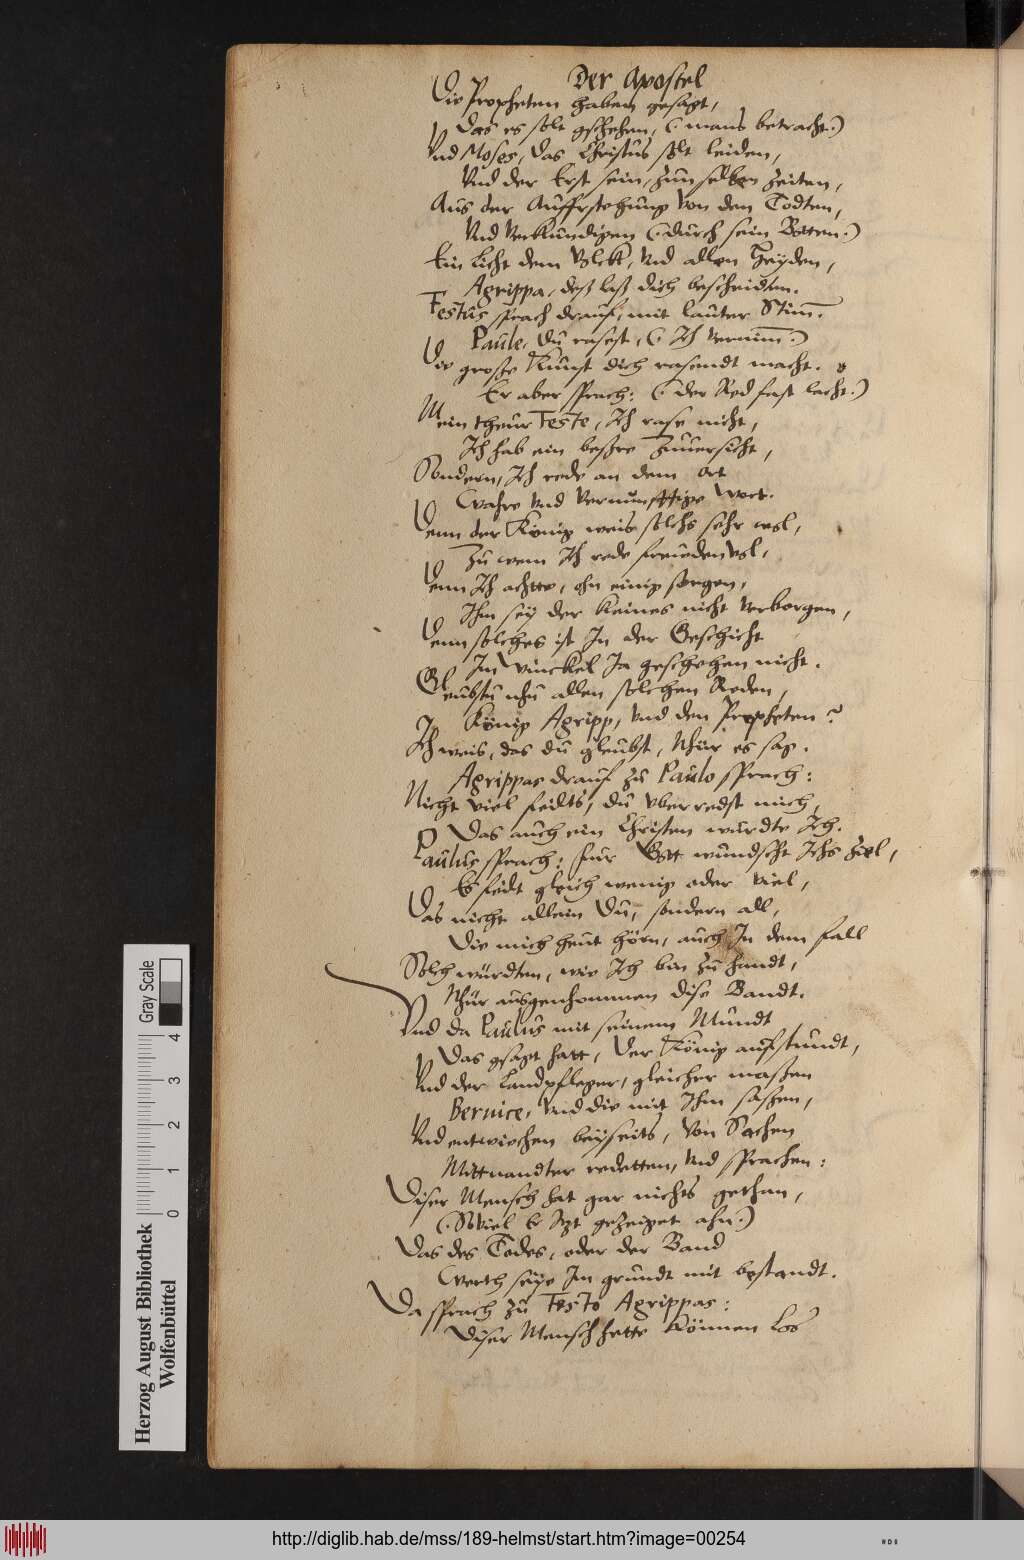 Der Apostel
Die Propheten haben gesagt,
Das es solt gschehen, (: mans betracht:)
Vnd Moses, das Christus solt leiden,
Vnd der Erst sein, zun selben Zeiten,
Aus der Aufferstehung von den Todten,
Vnd verkündigen (: durch sein Boten:)
Ein Licht dem Volck, vnd allen Heyden,
Agrippa, deß laß dich bescheiden.
Festus sprach drauf, mit lauter Stim̄.
Paule, du rasest, (: Ich vernim̄:)
Die große Kunst dich rasendt macht.
Er aber sprach: (: der Red fast lacht:)
Mein theur Feste, Ich rase nicht,
Ich hab ein beßre Zuuersicht,
Sondern, Ich rede an dem Ort
Wahre vnd vernunfftige Wort.
Denn der König weis solchs sehr wol,
Zu wem Ich rede freuden vol,
Denn Ich achtte, ohn einig sorgen,
Ihm sey der keines nicht verborgen,
Denn solches ist In der Geschicht
Im Winckel Ja geschehen nicht.
Gleubstu nhu allen solchen Reden,
König Agripp, vnd den Propheten?
Ich weis, das du gleubst, Nhür es sag.
Agrippas drauf zu Paulo sprach:
Nicht viel feilts, du vberredst mich,
Das auch ein Christen wurdte Ich.
Paulus sprach: fur Gott wundscht Ichs Ziel,
Es feilt gleich wenig oder viel,
Das nicht allein Du, sondern all,
Die mich heut hörn, auch In dem fall
Solch würdten, wie Ich bin zu handt,
Nhür ausgenhommen dise Bandt.
Vnd da Paulus mit seinem Mundt
Das gsagt hatt, der König aufstundt,
Vnd der Landpfleger, gleicher maßen
Bernice, vnd die mit Ihm saßen,
Vnd entwichen beyseits, von Sachen
Mittnandter redetten, vnd sprachen:
Diser Mensch hat gar nichts gethan,
(: Soviel Er Izt gezeiget ahn:)
Das des Todes, oder der Band
Werth seye Im grundt mit bestandt.
Da sprach zu Festo Agrippas:
Diser Mensch hette können Los
Herzog August Bibliothek
Wolfenbüttel
0 1 2 3 4
Gray Scale
http://diglib.hab.de/mss/189-helmst/start.htm?image=00254